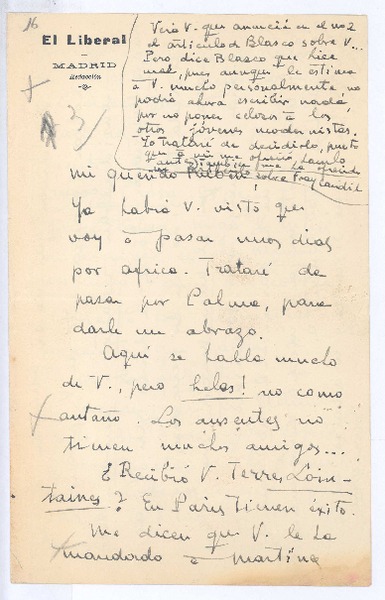 16
El Liberal
MADRID
Redacción
3
Verá V. que anuncia en el no 2
el artículo de Blasco sobre V...
Pero dice Blasco que hice
mal, pues aunque le estima
á V. mucho personalmente no
podrá ahora escribir nada
por no poner celosos á los
otros jóvenes modernistas.
Yo trataré de decidirlo, puesto
que á mi me ofreció,
sobre Fray Candil
mi querido Rubén,
Ya habrá V. visto que
voy á pasar unos días
por africa. Trataré de
pasar por Palma, para
darle un abrazo.
Aquí se habla mucho
de V., pero helas! no como
antaño. Los ausentes no
tienen muchos amigos...
¿Recibió V. Terres Loin-
taines? En Paris tienen éxito.
Me dicen que V. le ha
mandado á Martine